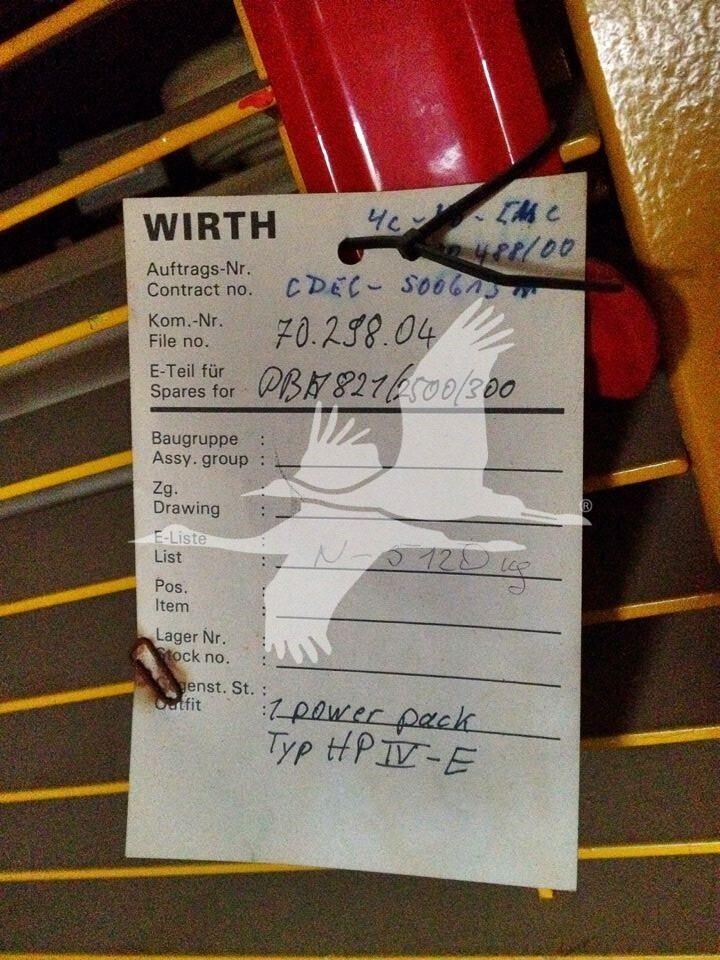 WIRTH
488/00
Auftrags-Nr.
Contract no. CDEC-
Kom.-Nr.
File no. 70.298.04
E-Teil für
Spares for PBA 821/2500/300
Baugruppe :
Assy. group :
Zg. :
Drawing :
E-Liste :
List : N-5120 kg
Pos. :
Item :
Lager Nr. :
Stock no. :
St. :
Outfit : 1 power pack
Typ HP IV-E
®